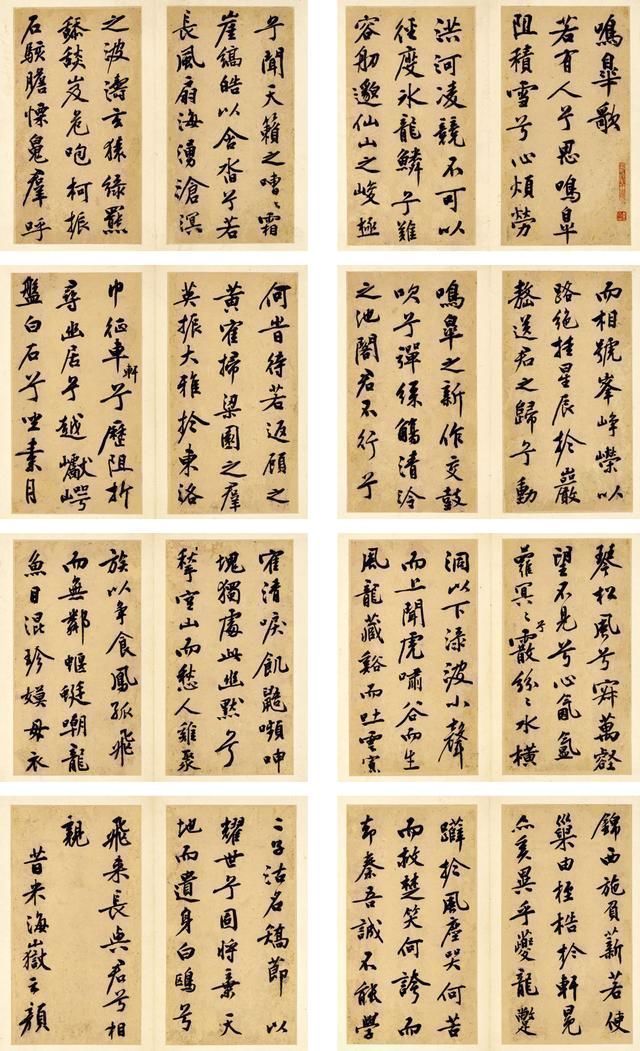 鳴皋歌
若有人兮思鳴皋
阻積雪兮心煩勞
洪河凌競不可以
徑度冰龍鱗兮難
容舠邈仙山之峻極
兮聞天籟之嘈〻霜
崖縞皓以合沓兮若
長風扇海湧滄溟
之波濤玄猿綠羆
舔舕岌危咆柯振
石駭膽慄魄群呼
而相號峯崢嶸以
路絕挂星辰於巖
嶅送君之歸兮動
鳴皋之新作交鼓
吹兮彈絲觴清泠
之池閣君不行兮
何昔待若返顧之
黃寉掃梁園之群
英振大雅於東洛
巾征車軒兮歷阻折
尋幽居兮越巘崿
盤白石兮坐素月
琴松風兮寂萬壑
望不見兮心氤氳
蘿冥〻兮霰紛〻水橫
洞以下淥波小聲
而上聞虎嘯谷而生
風龍藏谿而吐雲寡
寉清唳飢鼯嚬呻
塊獨處此幽默兮
愀空山而愁人雞聚
族以爭食鳳孤飛
而無鄰蝘蜓嘲龍
魚目混珍嫫母衣
錦西施負薪若使
巢由桎梏於軒冕
亦奚異乎夔龍蹩
躠於風塵哭何苦
而救楚笑何誇而
却秦吾誠不能學
二子沽名矯節以
耀世兮固將棄天
地而遺身白鷗兮
飛來長與君兮相
親
昔米海嶽云顏